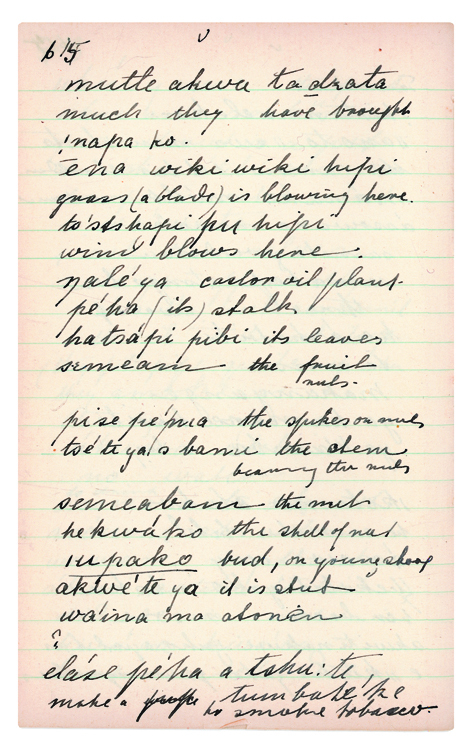 615
mutle akwa tadzata
much they have brought
!napa ko.
ēna wiki wiki hipi
grass (a blade) is blowing here.
to'stshapi pu hipi
wind blows here.
nalé ya castor oil plant
péha (its) stalk
hatsápi pibi its leaves
semeam the fruit
nuts.
pise pépua the spikes on nuts
tsé'te ya s bami the stem
bearing the nuts
semeabam the nut
hekwáko the shell of nut
iupako bud, or young shoot
akwé'te ya it is shut
wáina ma atonēn
?
eláse péha a tshu: te
make a tumbaké ke
to smoke tobacco.